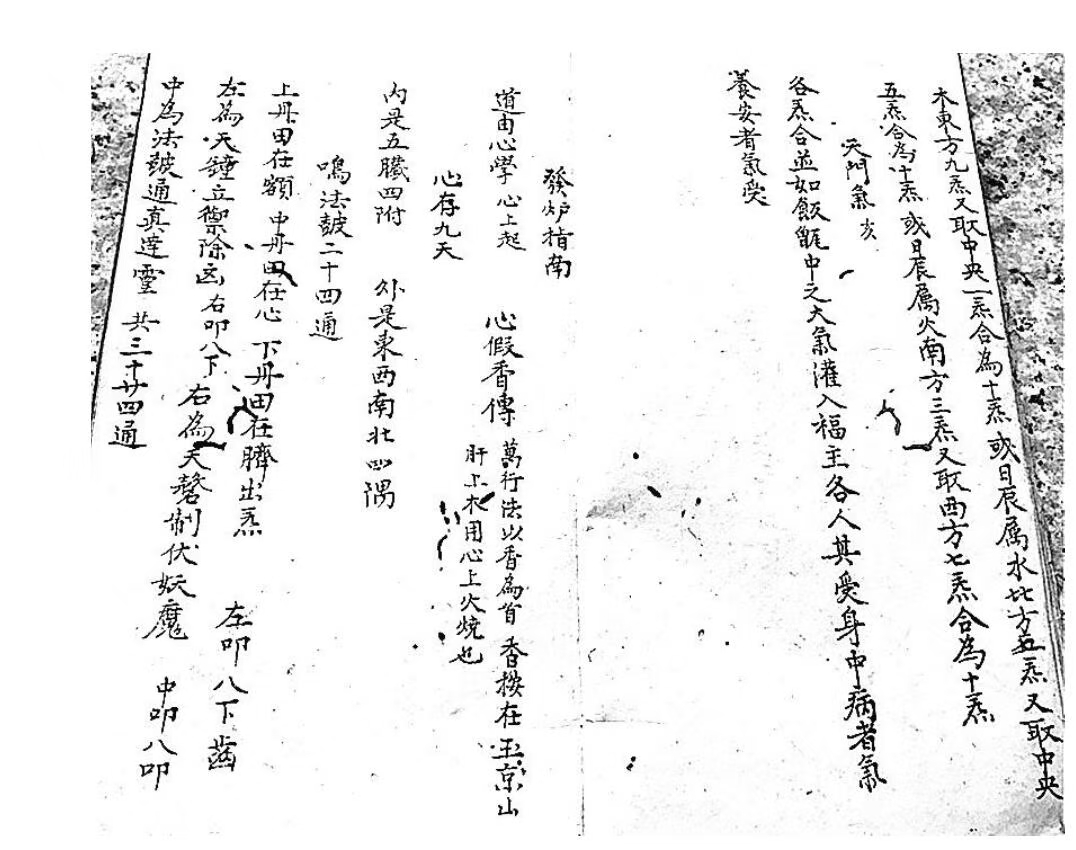 木東方九炁又取中央一炁合為十炁或日辰属水北方五炁又取中央
五炁合為十炁或日辰属火南方三炁又取西方七炁合為十炁
天門氣亥
各炁合並如飯甑中之大氣灌入福主各人其受身中病者氣
養安者氣受
發炉指南
道由心學 心上起 心假香傳 萬行法以香為首 香按在玉京山
肝上木用心上火燒也
心存九天
內是五臟四附 外是東西南北四隅
鳴法鼓二十四通
上丹田在額 中丹田在心 下丹田在臍出炁
左為天鐘立禦除凶 右叩八下 左叩八下齒
右為天磬制伏妖魔 中叩八叩
中為法鼓通真達靈 共三十廿四通